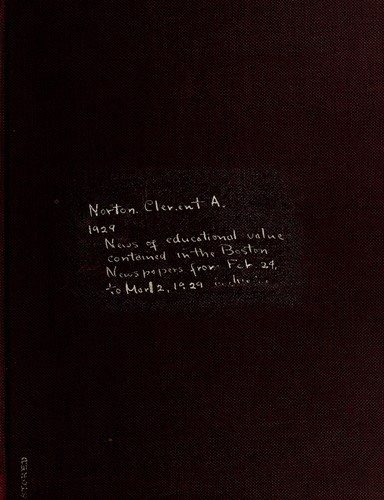 Norton, Clement A.
1929
News of educational value
contained in the Boston
Newspapers from Feb. 24,
to Mar. 2, 1929 inclusive
STORED